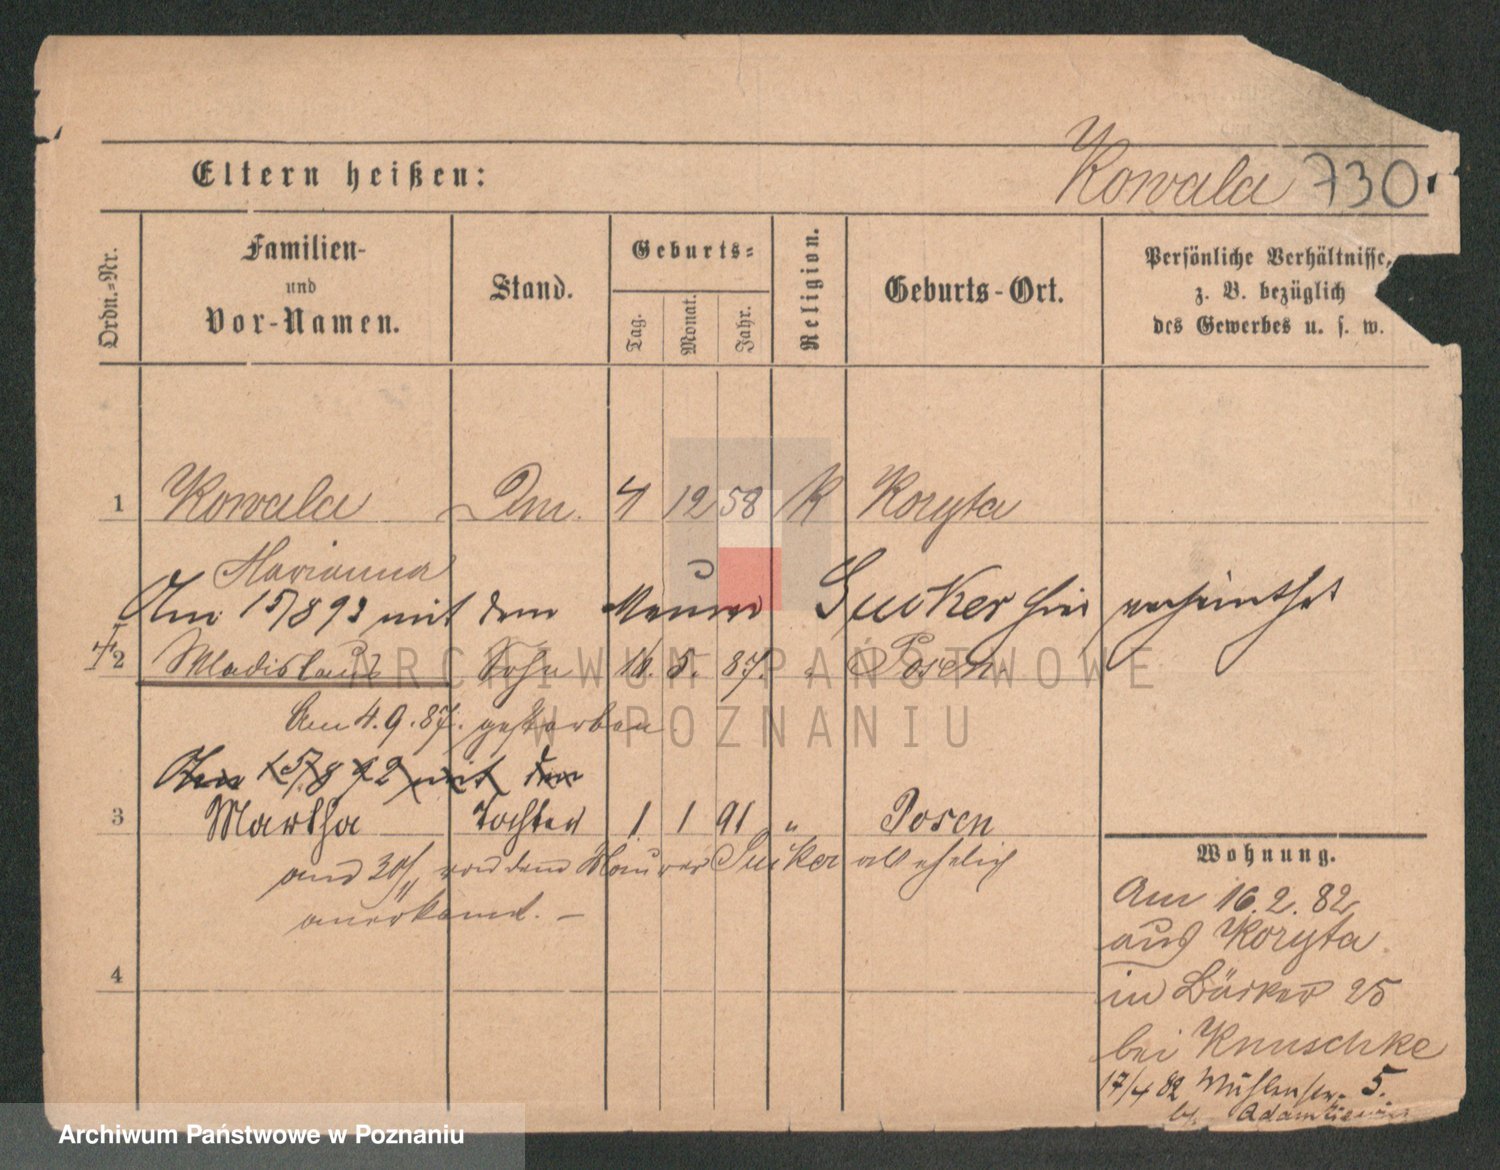 Eltern heißen:
Kowala 730.
Ordn.-Nr.
Familien-
und
Vor-Namen.
Stand.
Geburts-
Tag.
Monat.
Jahr.
Religion.
Geburts-Ort.
Persönliche Verhältnisse,
z. B. bezüglich
des Gewerbes u. s. w.
1 Kowala 4 12 58 K Koryta
Marianna
Am 15/8 93 mit dem Maurer Sucker hier verheirathet
2 Wladislaus Sohn 10. 5. 87. " Posen
ARCHIWUM PAŃSTWOWE
W POZNANIU
Am 4.9.87. gestorben
Am 15/8 92 mit dem
3 Martha Tochter 1 1 91 " Posen
von dem Maurer Sucker als ehelich
anerkannt. –
4
Wohnung.
Am 16.2.82
aus Koryta
in Bäcker 25
bei Knuschke
17/4 82 Mühlenstr. 5.
Archiwum Państwowe w Poznaniu